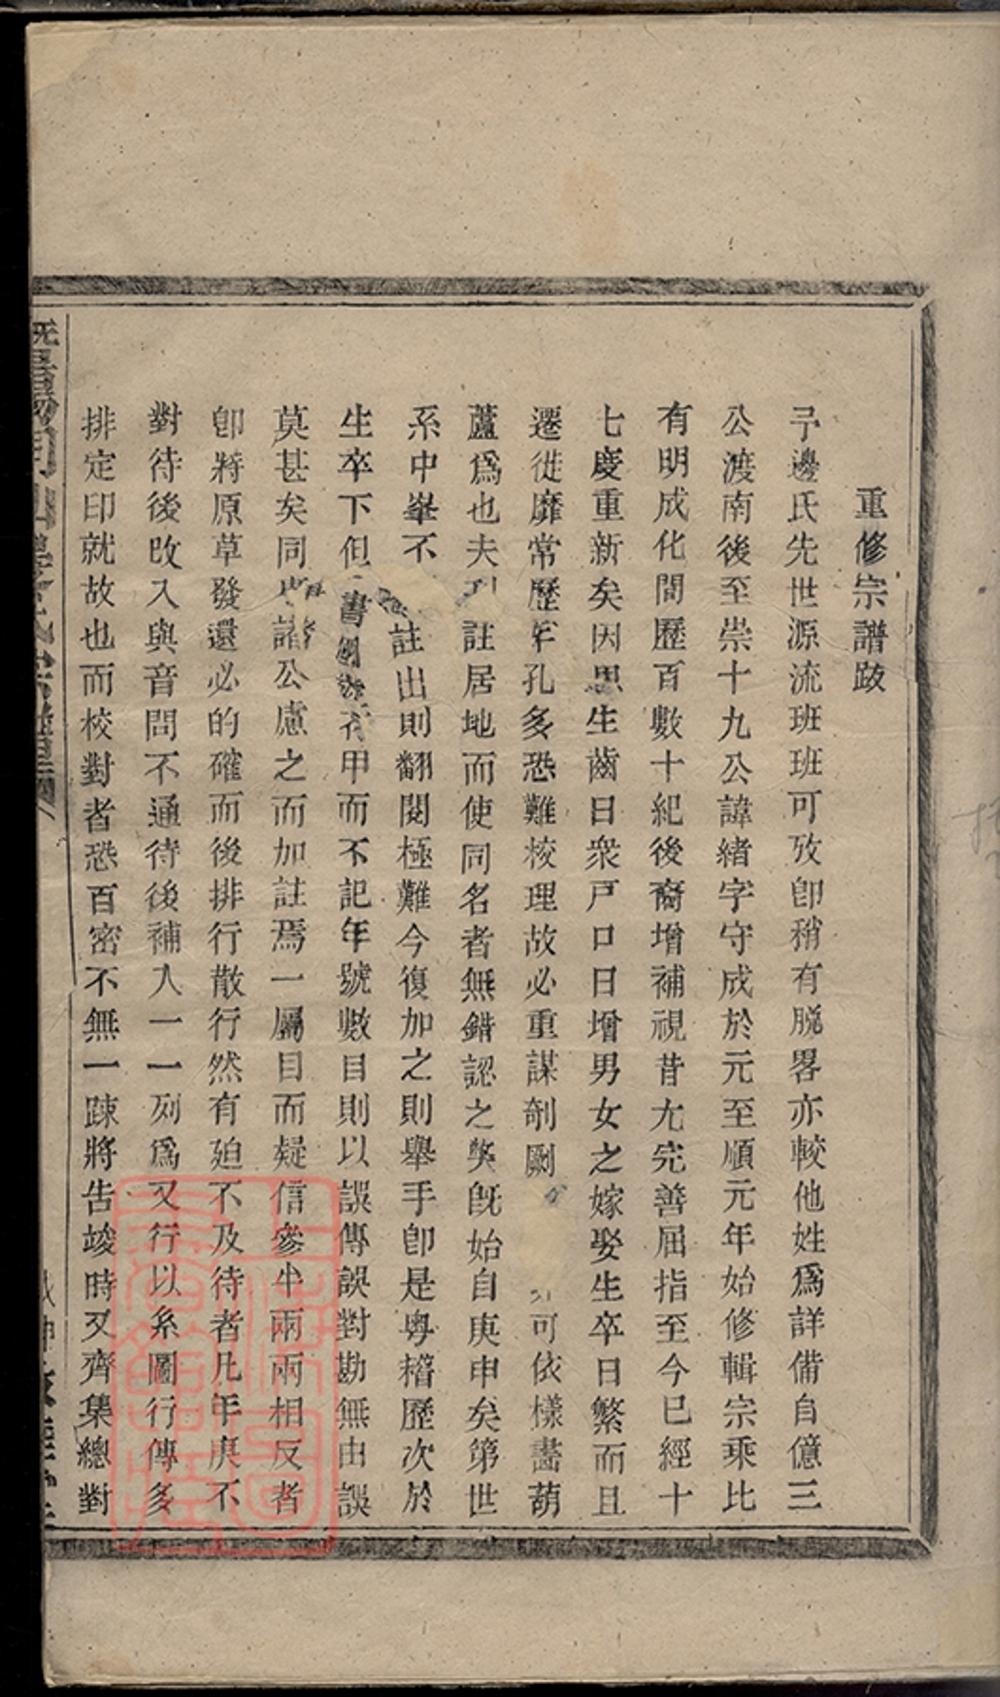 重修宗譜跋
予邊氏先世源流班班可攷卽稍有脫畧亦較他姓爲詳備自億三
公渡南後至崇十九公諱緒字守成於元至順元年始修輯宗乘比
有明成化間歷百數十紀後裔增補視昔尤完善屈指至今已經十
七慶重新矣因思生齒日衆戶口日增男女之嫁娶生卒日繁而且
遷徙靡常歷年孔多恐難校理故必重謀剞劂可依樣畫葫
蘆爲也夫註居地而使同名者無錯認之獘旣始自庚申矣第世
系中舉不註出則翻閱極難今復加之則舉手卽是粵稽歷次於
生卒下但書甲而不記年號數目則以誤傳誤對勘無由誤
莫甚矣同諸公慮之而加註焉一屬目而疑信參半兩兩相反者
卽將原草發還必的確而後排行散行然有廹不及待者凡年庚不
對待後改入與音問不通待後補入一一列爲又行以系圖行傳多
排定印就故也而校對者恐百密不無一踈將告竣時又齊集總對